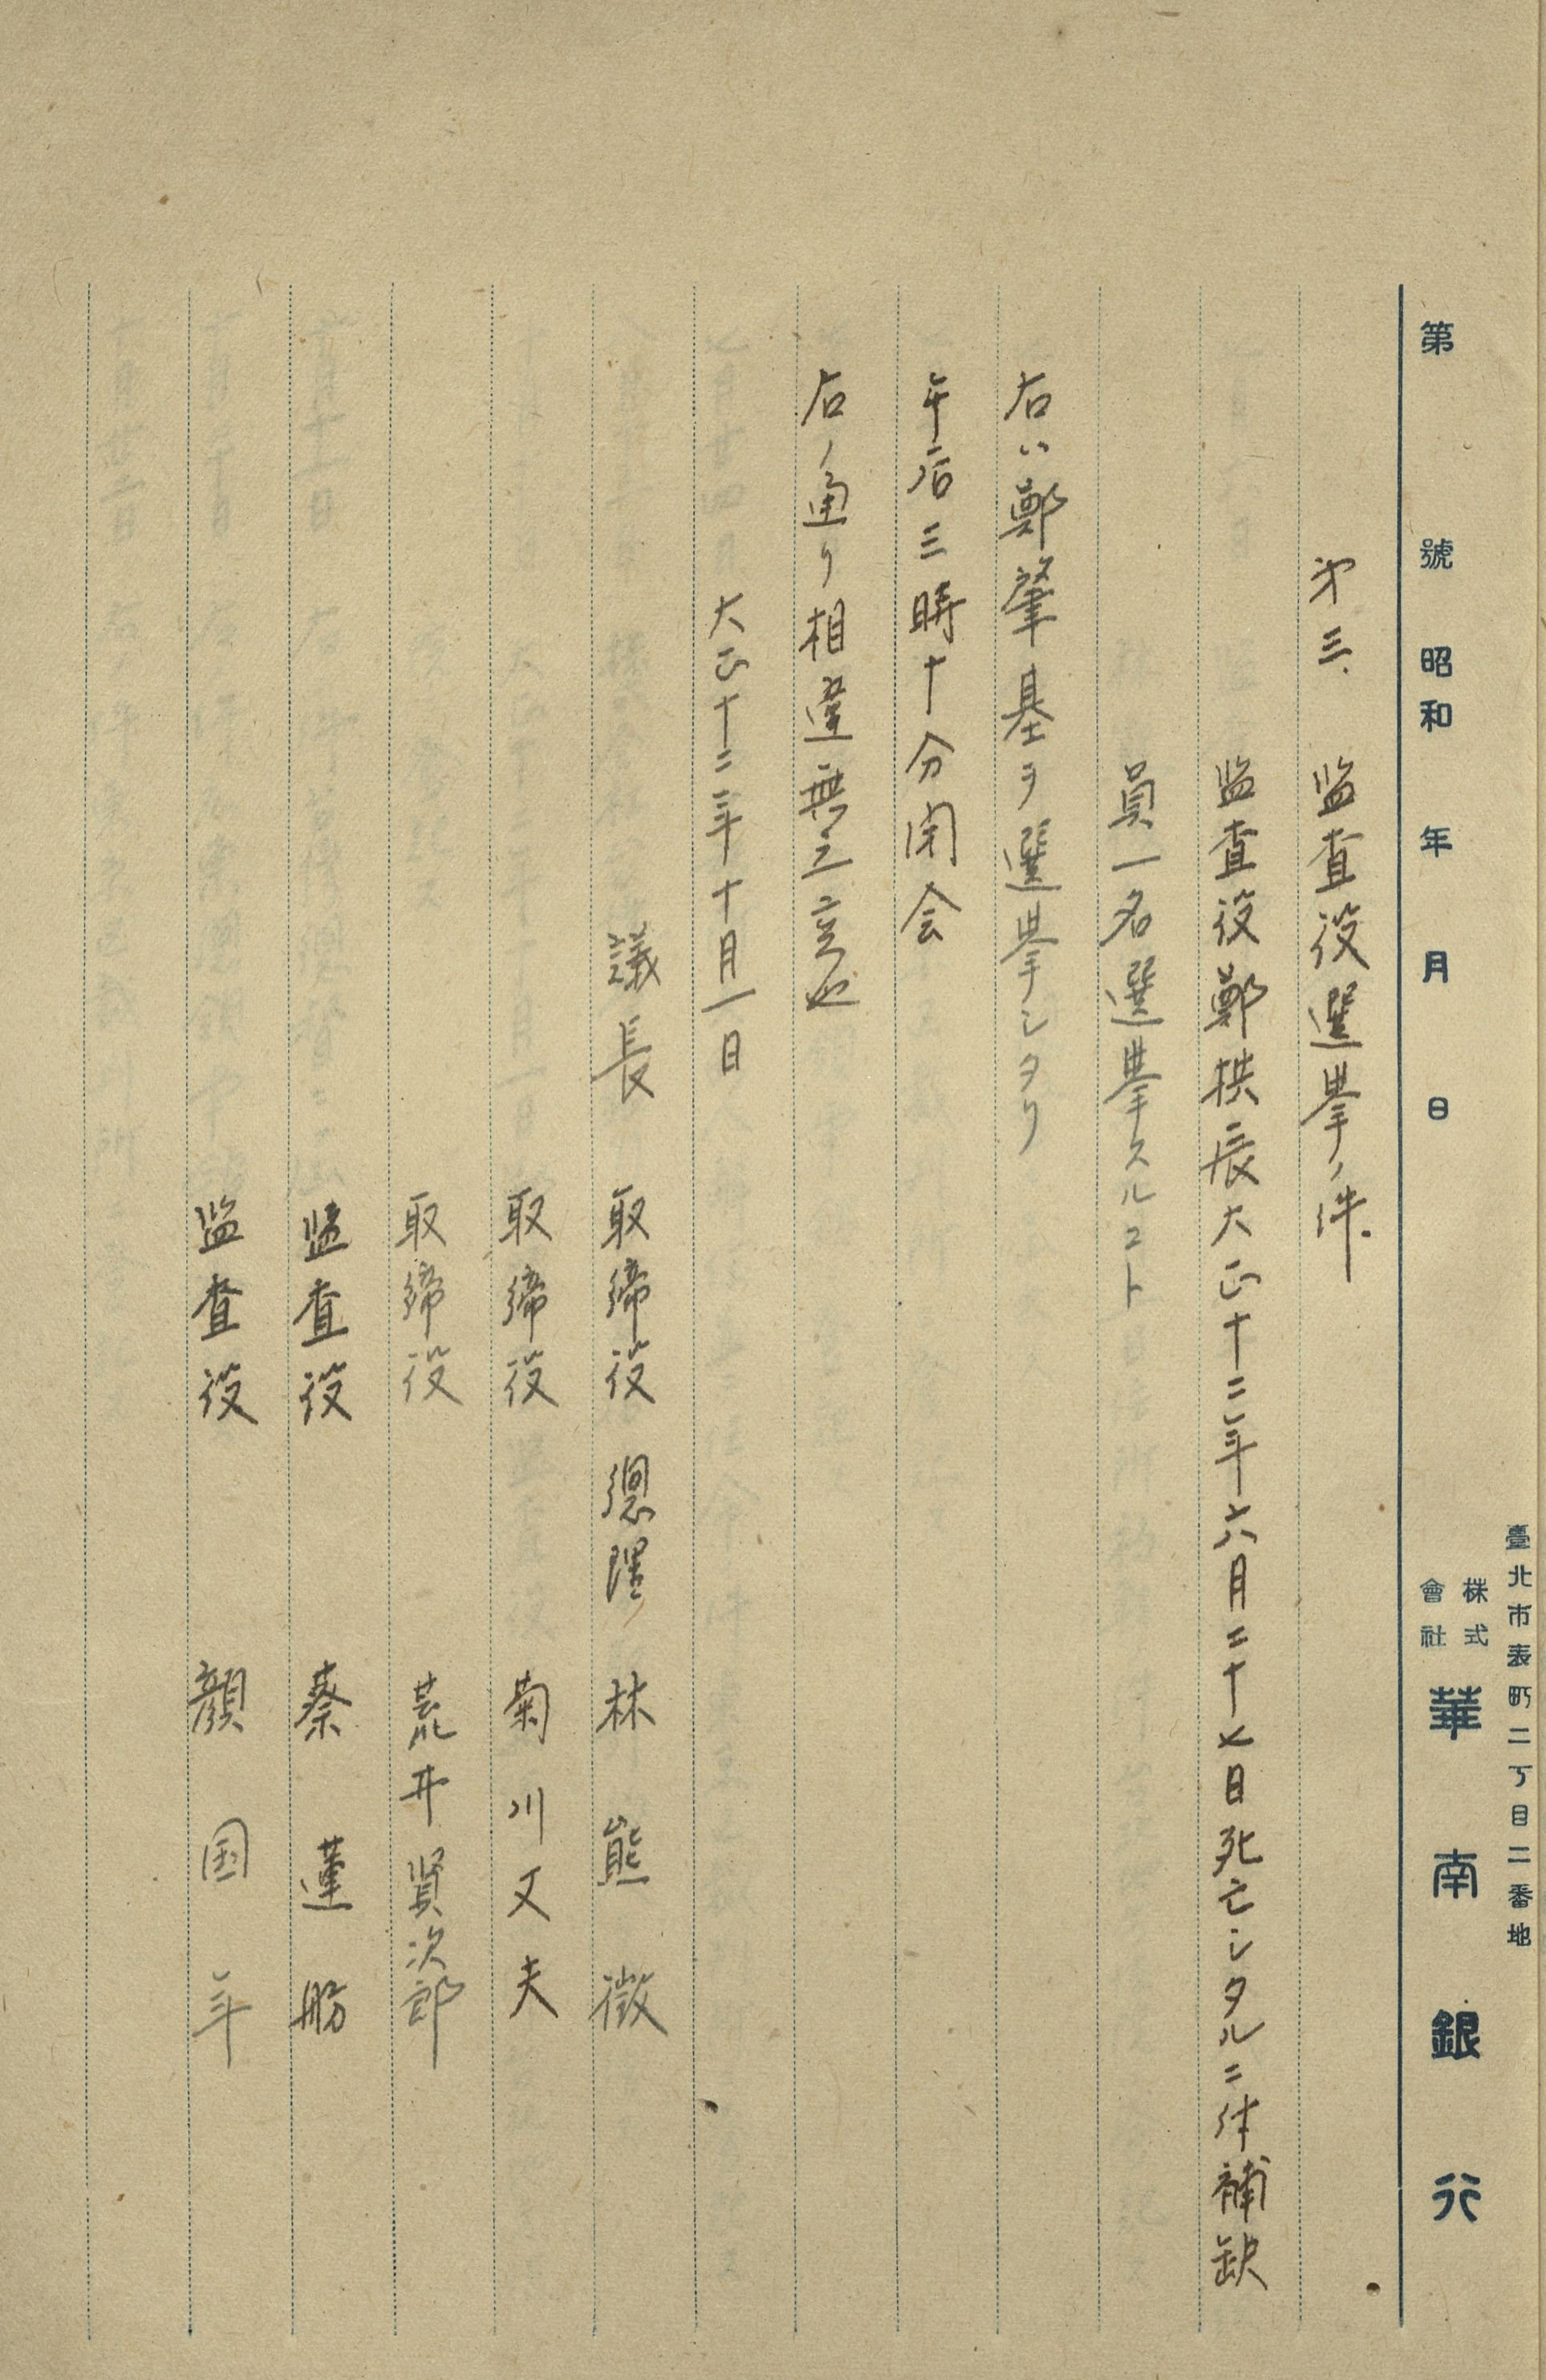 臺北市表町二丁目二番地
第 號 昭和 年 月 日 株式會社 華南銀行
第三、監査役選挙ノ件
監査役鄭拱辰大正十二年六月二十七日死亡シタルニ付補缺
員一名選挙スルコト
右ハ鄭肇基ヲ選挙シタリ
午后三時十分閉会
右ノ通リ相違無之候也
大正十二年十月一日
議長 取締役 總理 林熊徴
取締役 菊川又夫
取締役 荒井賢次郎
監査役 蔡蓮舫
監査役 顔国年